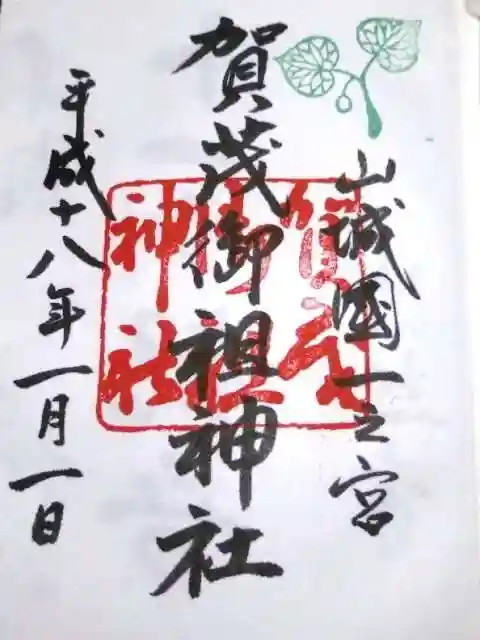 山城國一之宮
賀茂御祖神社
平成十八年一月一日
賀茂
御祖
神社